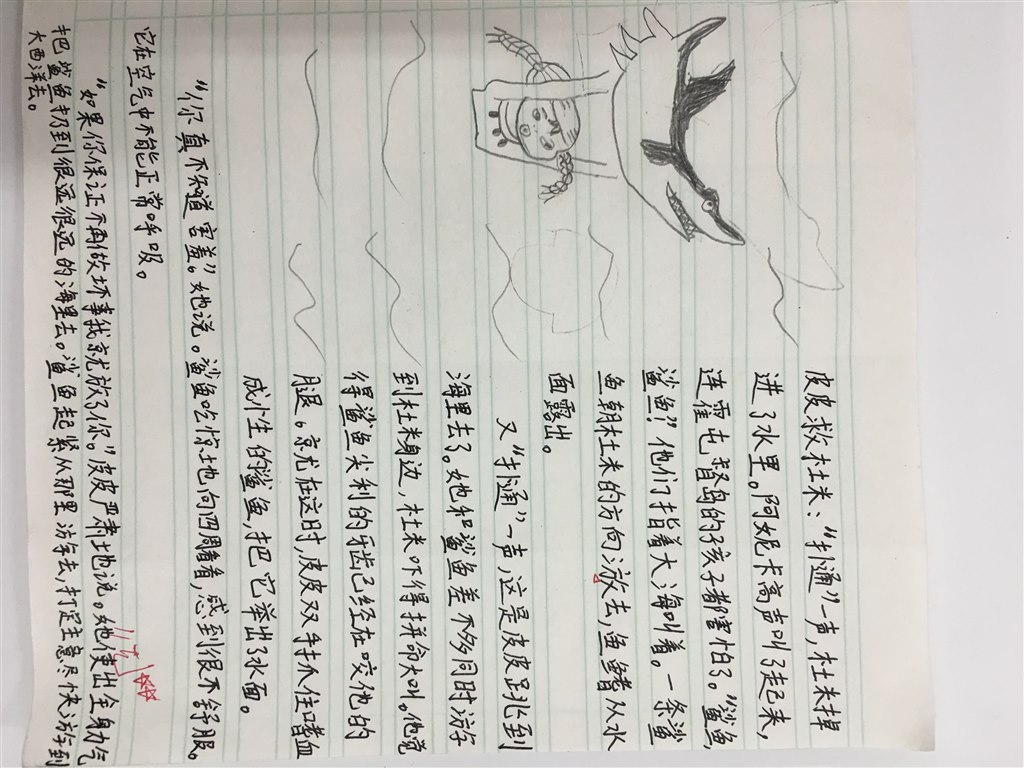 皮皮救杜米："扑通"一声，杜米掉
进了水里。阿妮卡高声叫了起来，
连霍屯督岛的孩子都害怕了。"鲨鱼，
鲨鱼！"他们指着大海叫着。一条鲨
鱼朝杜米的方向游去，鱼鳍从水
面露出。
又"扑通"一声，这是皮皮跳到
海里去了。她和鲨鱼差不多同时游
到杜米身边，杜米吓得拼命大叫。他觉
得鲨鱼尖利的牙齿已经在咬他的
腿。就在这时，皮皮双手抓住嗜血
成性的鲨鱼，把它举出了水面。
"你真不知道害羞"她说。鲨鱼吃惊地向四周看看，感到很不舒服。
它在空气中不能正常呼吸。
"如果你保证不再做坏事我就放了你。"皮皮严肃地说。她使出全身力气
把鲨鱼扔到很远很远的海里去。鲨鱼起紧从那里游去，打定主意尽快游到
大西洋去。